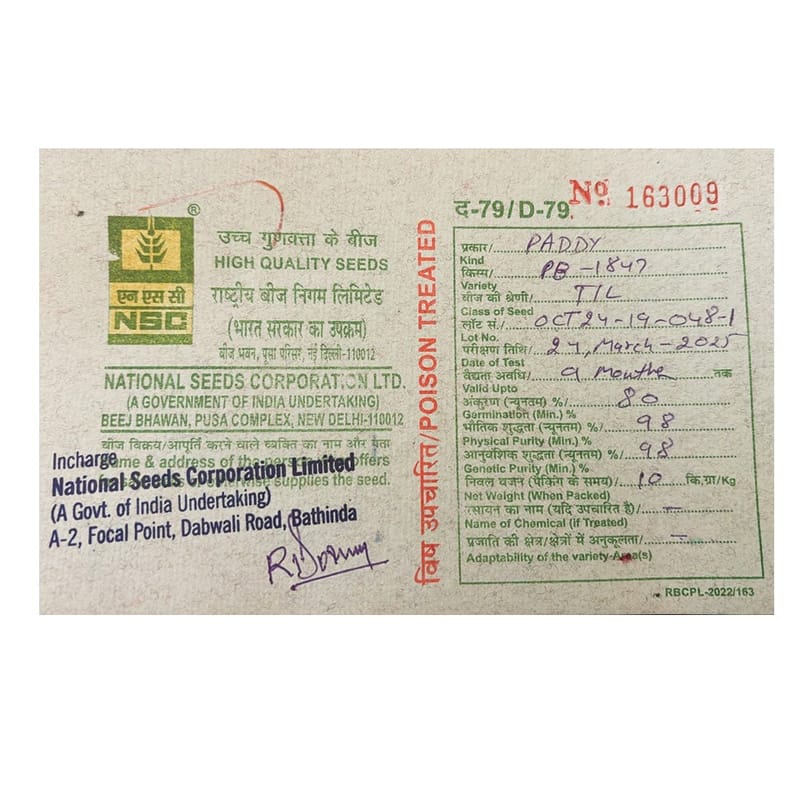 ®
एन एस सी
NSC
उच्च गुणवत्ता के बीज
HIGH QUALITY SEEDS
राष्ट्रीय बीज निगम लिमिटेड
(भारत सरकार का उपक्रम)
बीज भवन, पूसा परिसर, नई दिल्ली-110012
NATIONAL SEEDS CORPORATION LTD.
(A GOVERNMENT OF INDIA UNDERTAKING)
BEEJ BHAWAN, PUSA COMPLEX, NEW DELHI-110012
बीज विक्रय/आपूर्ति करने वाले व्यक्ति का नाम और पता
name & address of the person who offers
supplies the seed.
Incharge
National Seeds Corporation Limited
(A Govt. of India Undertaking)
A-2, Focal Point, Dabwali Road, Bathinda
विष उपचारित/POISON TREATED
द-79/D-79. No 163009
प्रकार/ PADDY
Kind
किस्म/ PB-1847
Variety
बीज की श्रेणी/ T/L
Class of Seed
लॉट सं./ OCT24-19-048-1
Lot No.
परीक्षण तिथि/ 27, March-2025
Date of Test
वैद्यता अवधि/ 9 Months तक
Valid Upto
अंकुरण (न्यूनतम) %/ 80
Germination (Min.) %
भौतिक शुद्धता (न्यूनतम) %/ 98
Physical Purity (Min.) %
आनुवंशिक शुद्धता (न्यूनतम) %/ 98
Genetic Purity (Min.) %
निवल वजन (पैकिंग के समय)/ 10 कि.ग्रा/Kg
Net Weight (When Packed)
रसायन का नाम (यदि उपचारित है)/ -
Name of Chemical (if Treated)
प्रजाति की क्षेत्र/क्षेत्रों में अनुकूलता/ -
Adaptability of the variety Area(s)
RBCPL-2022/163